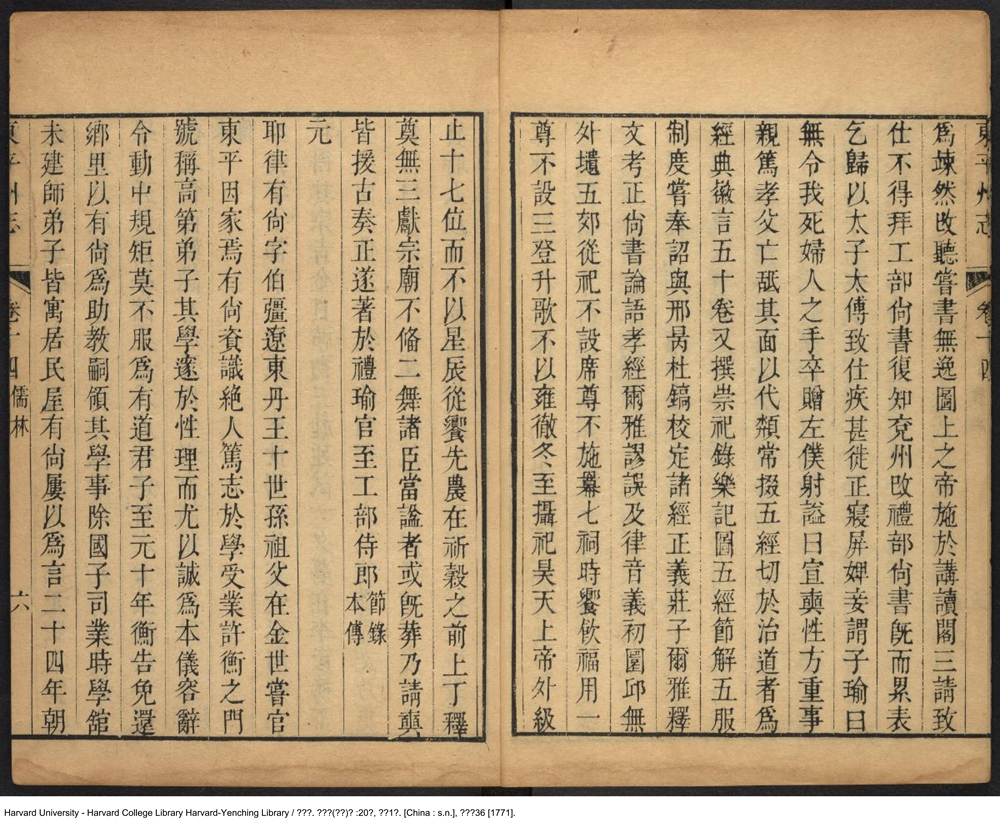 為竦然改聽嘗書無逸圖上之帝施於講讀閣三請致
仕不得拜工部尚書復知兗州改禮部尚書旣而累表
乞歸以太子太傅致仕疾甚徙正寢屏婢妾謂子瑜曰
無令我死婦人之手卒贈左僕射諡曰宣奭性方重事
親篤孝父亡舐其面以代頮常掇五經切於治道者為
經典徽言五十卷又撰崇祀錄樂記圖五經節解五服
制度嘗奉詔與邢昺杜鎬校定諸經正義莊子爾雅釋
文考正尚書論語孝經爾雅謬誤及律音義初圜邱無
外壝五郊從祀不設席尊不施羃七祠時饗飲福用一
尊不設三登升歌不以雍徹冬至攝祀昊天上帝外級
東平州志
卷十四
止十七位而不以星辰從饗先農在祈穀之前上丁釋
奠無三獻宗廟不備二舞諸臣當諡者或旣葬乃請奭
皆援古奏正遂著於禮瑜官至工部侍郎節錄本傳
元
耶律有尚字伯彊遼東丹王十世孫祖父在金世嘗官
東平因家焉有尚資識絶人篤志於學受業許衡之門
號稱高第弟子其學邃於性理而尤以誠為本儀容辭
令動中規矩莫不服為有道君子至元十年衡告免還
鄉里以有尚為助教嗣領其學事除國子司業時學館
未建師弟子皆寓居民屋有尚屢以為言二十四年朝
東平州志
卷十四
儒林
六
Harvard University - Harvard College Library Harvard-Yenching Library / ???. ???(??)? :20?, ??1?. [China : s.n.], ???36 [1771].